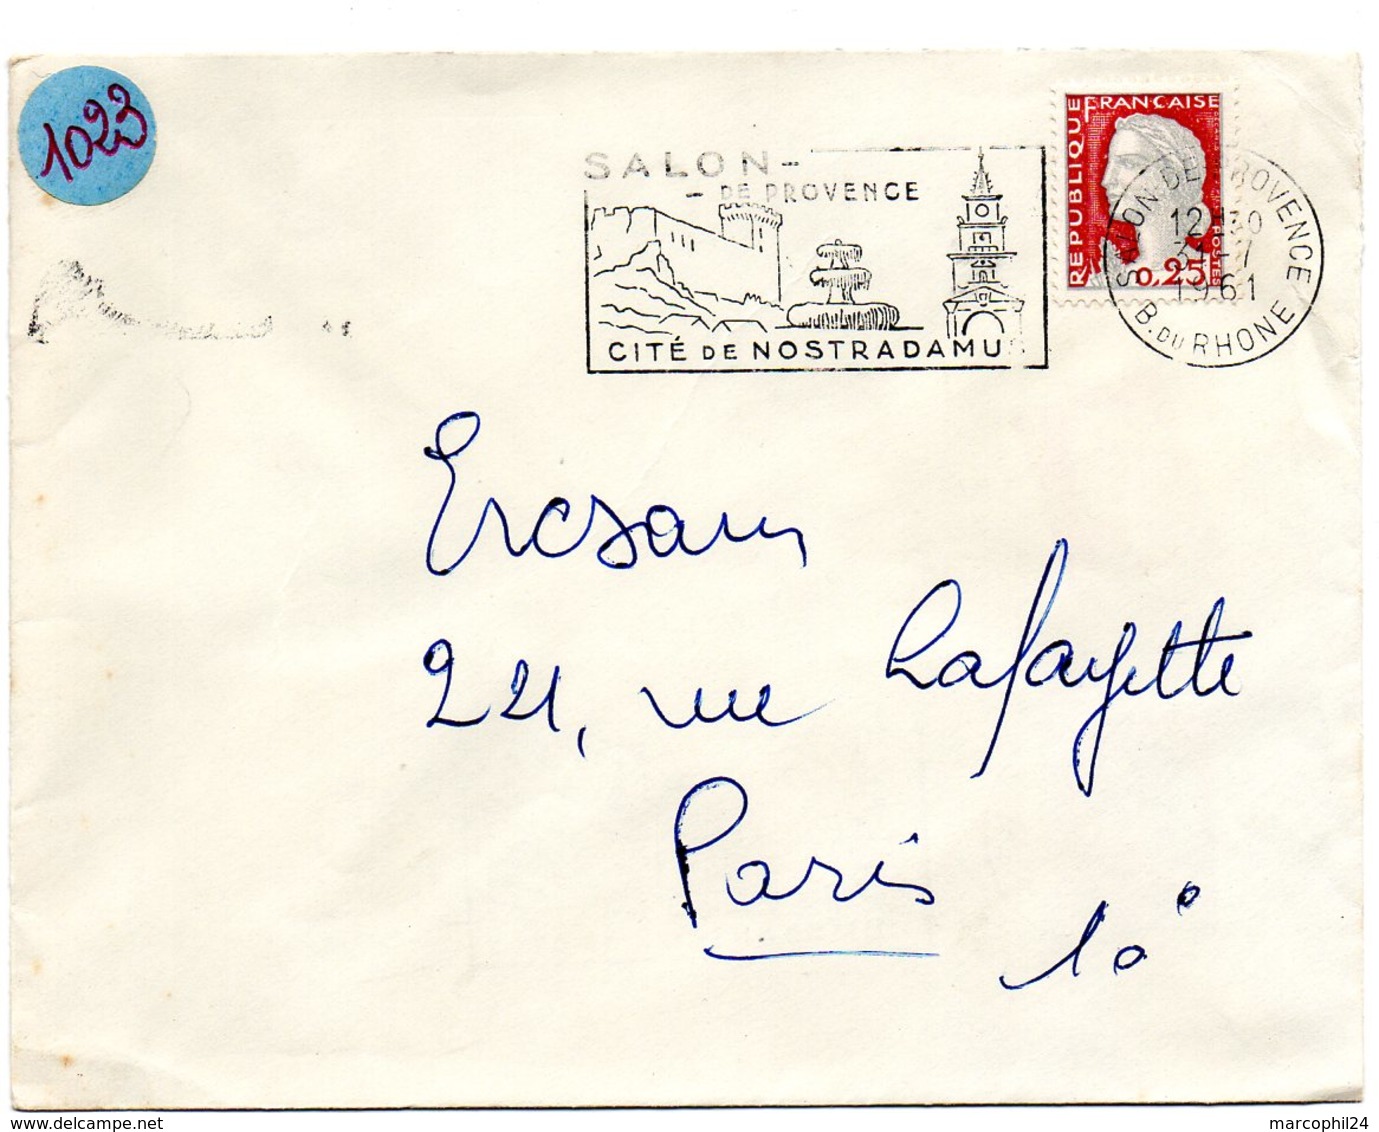 1023
SALON-
- DE PROVENCE
CITÉ DE NOSTRADAMUS
RÉPUBLIQUE FRANÇAISE
POSTES
0,25
SALON-DE-PROVENCE
12H30
31-7
1961
B. DU RHONE
Ercsam
221, rue Lafayette
Paris
10°
marcophil24